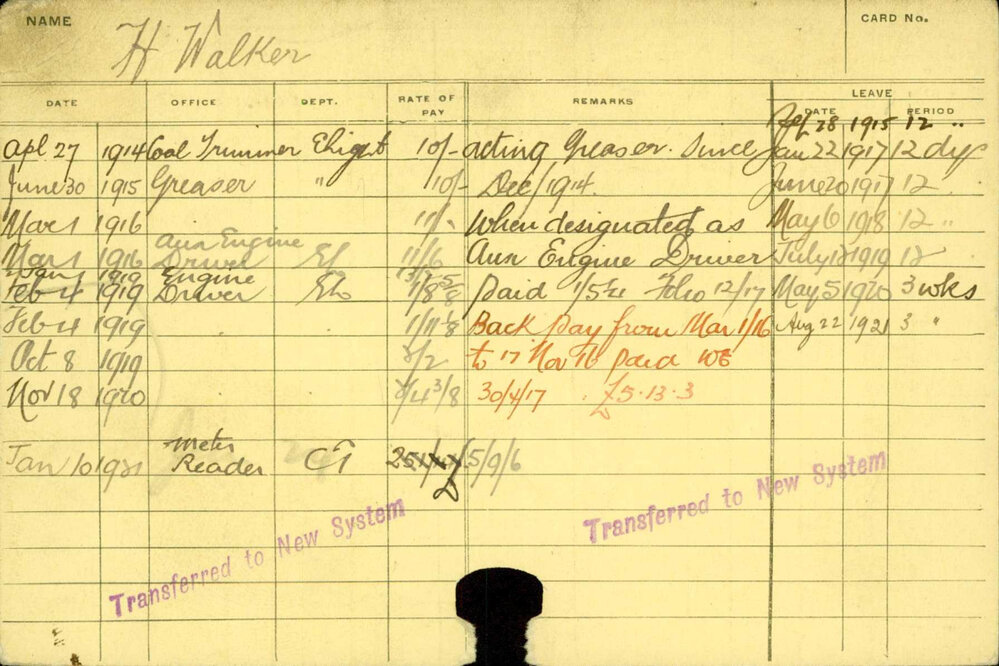 NAME H Walker CARD No.
DATE OFFICE DEPT. RATE OF PAY REMARKS LEAVE DATE PERIOD
28 1915 12 "
Apl 27 1914 Coal Trimmer 10/- acting Greaser. Since Jan 22 1917 12 dys
June 30 1915 Greaser " 10/- Dec/1914. June 20 1917 12
Mar 1 1916 11/- When designated as May 6 1918 12 "
Mar 1 1916 Aux Engine Driver El 11/6 Aux Engine Driver July 1919 12
1919 Engine
Feb 4 1919 Driver paid Folio 12/17 May 5 1920 3 wks
Feb 4 1919 Back pay from Mar 1/16 Aug 22 1921 3 "
Oct 8 1919 to 17 Nov 16 paid WE
Nov 18 1920 30/4/17 £5.13.3
Jan 10 1921 Meter Reader 5/9/6
Transferred to New System
Transferred to New System